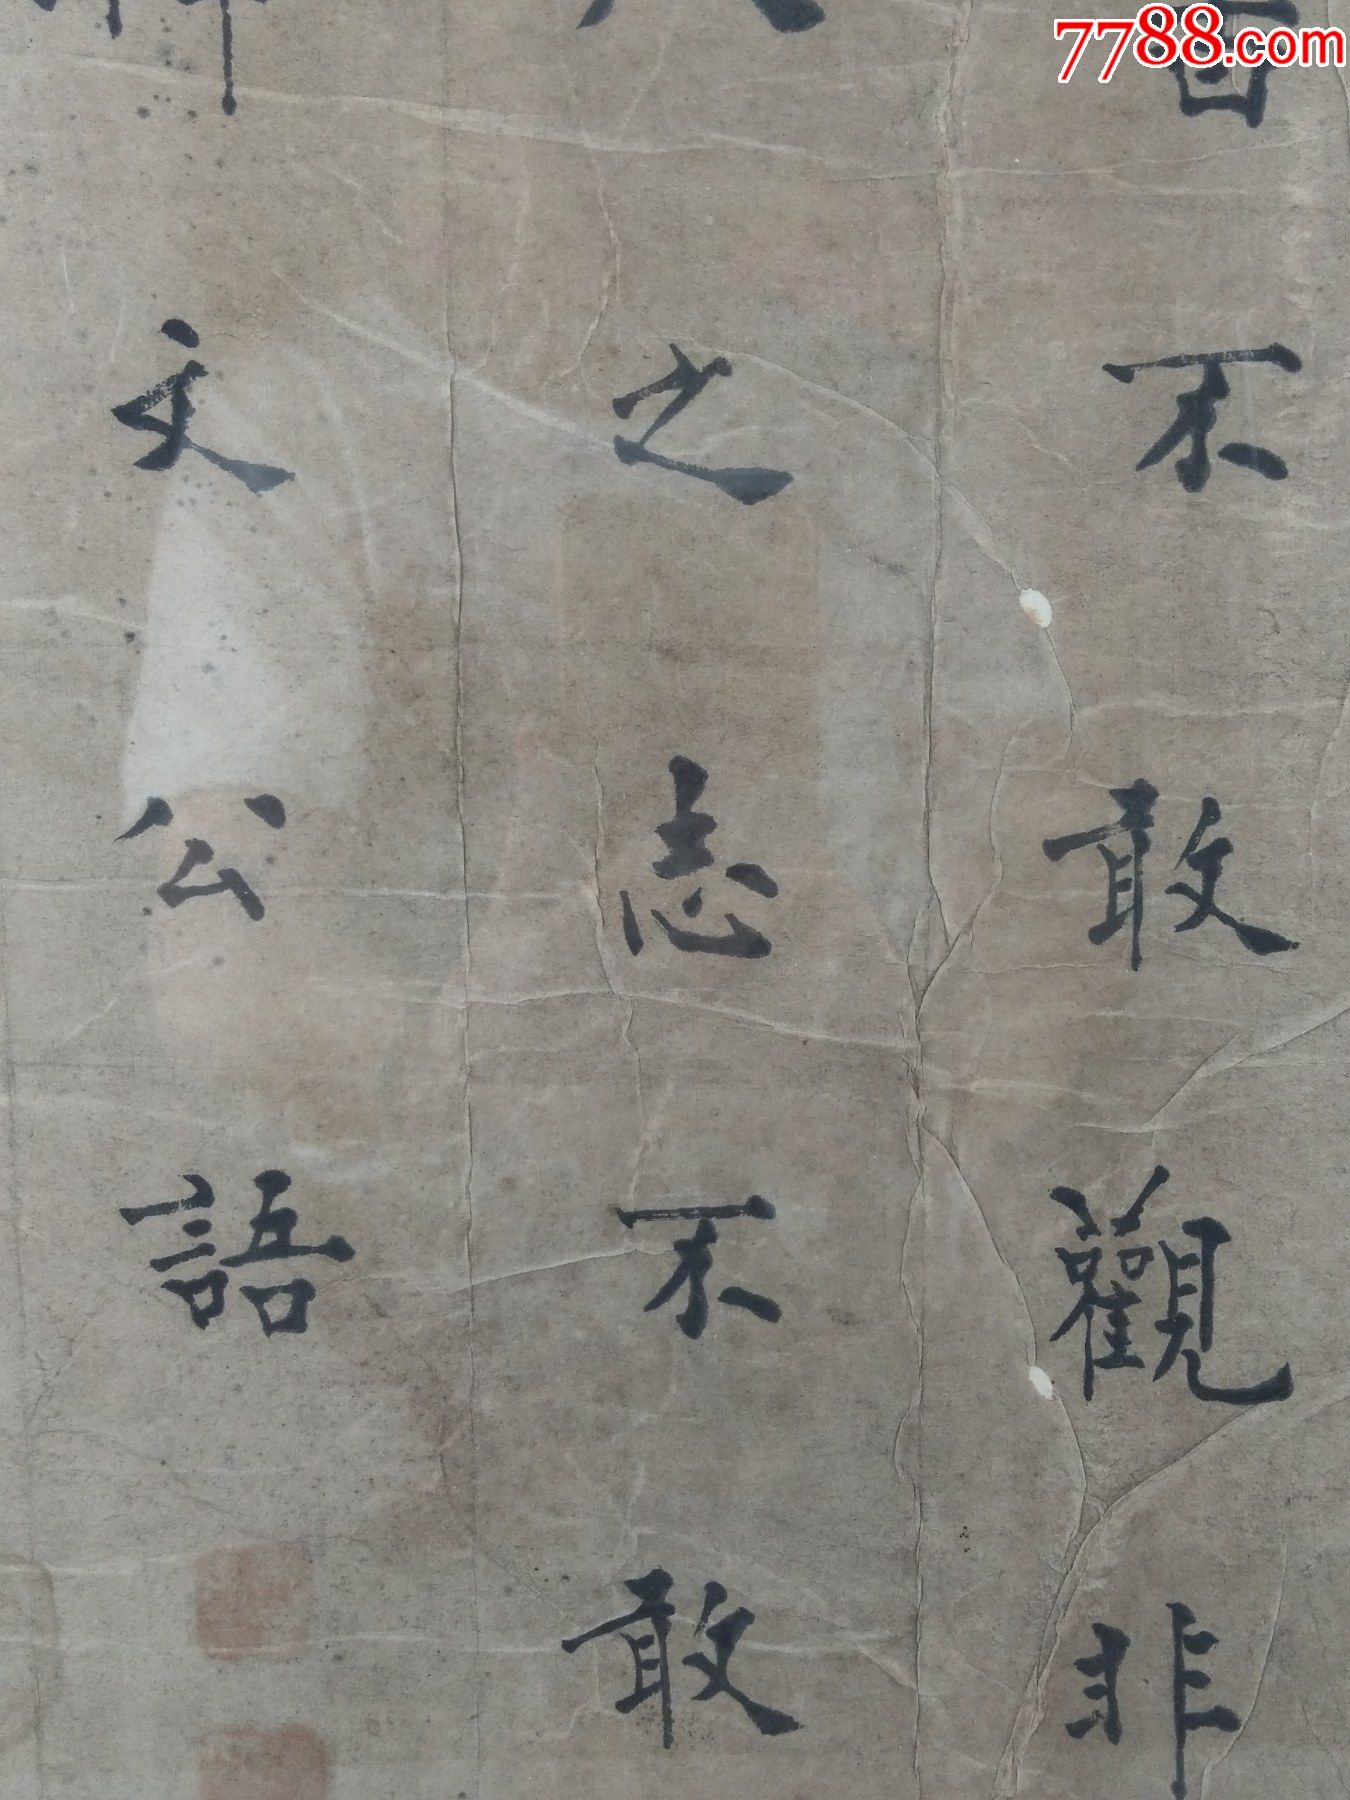 7788.com
不敢觀非
之志不敢
文公語